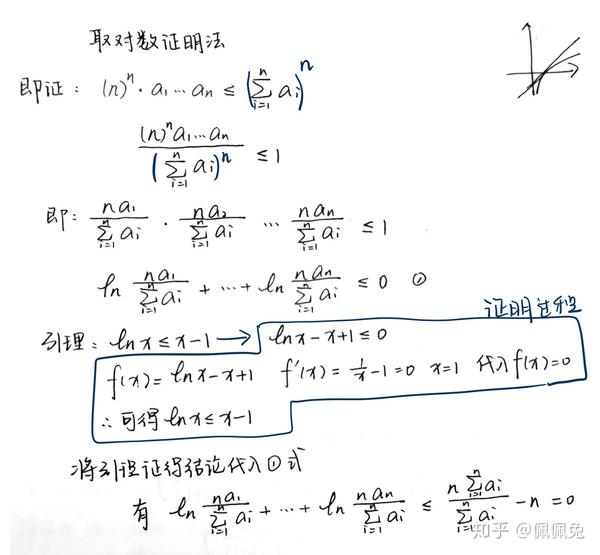 取对数证明法
即证: (n)ⁿ · a₁ ⋯ aₙ ≤ (∑ᵢ₌₁ⁿ aᵢ)ⁿ
(n)ⁿ a₁ ⋯ aₙ / (∑ᵢ₌₁ⁿ aᵢ)ⁿ ≤ 1
即: na₁ / ∑ᵢ₌₁ⁿ aᵢ · na₂ / ∑ᵢ₌₁ⁿ aᵢ ⋯ naₙ / ∑ᵢ₌₁ⁿ aᵢ ≤ 1
ln na₁ / ∑ᵢ₌₁ⁿ aᵢ + ⋯ + ln naₙ / ∑ᵢ₌₁ⁿ aᵢ ≤ 0 ①
证明过程
引理: lnx ≤ x-1 → lnx-x+1 ≤ 0
f(x) = lnx-x+1 f'(x) = 1/x - 1 = 0 x=1 代入 f(x)=0
∴ 可得 lnx ≤ x-1
将引理证得结论代入①式
有 ln na₁ / ∑ᵢ₌₁ⁿ aᵢ + ⋯ + ln naₙ / ∑ᵢ₌₁ⁿ aᵢ ≤ n∑ᵢ₌₁ⁿ aᵢ / ∑ᵢ₌₁ⁿ aᵢ - n = 0
知乎 @佩佩兔